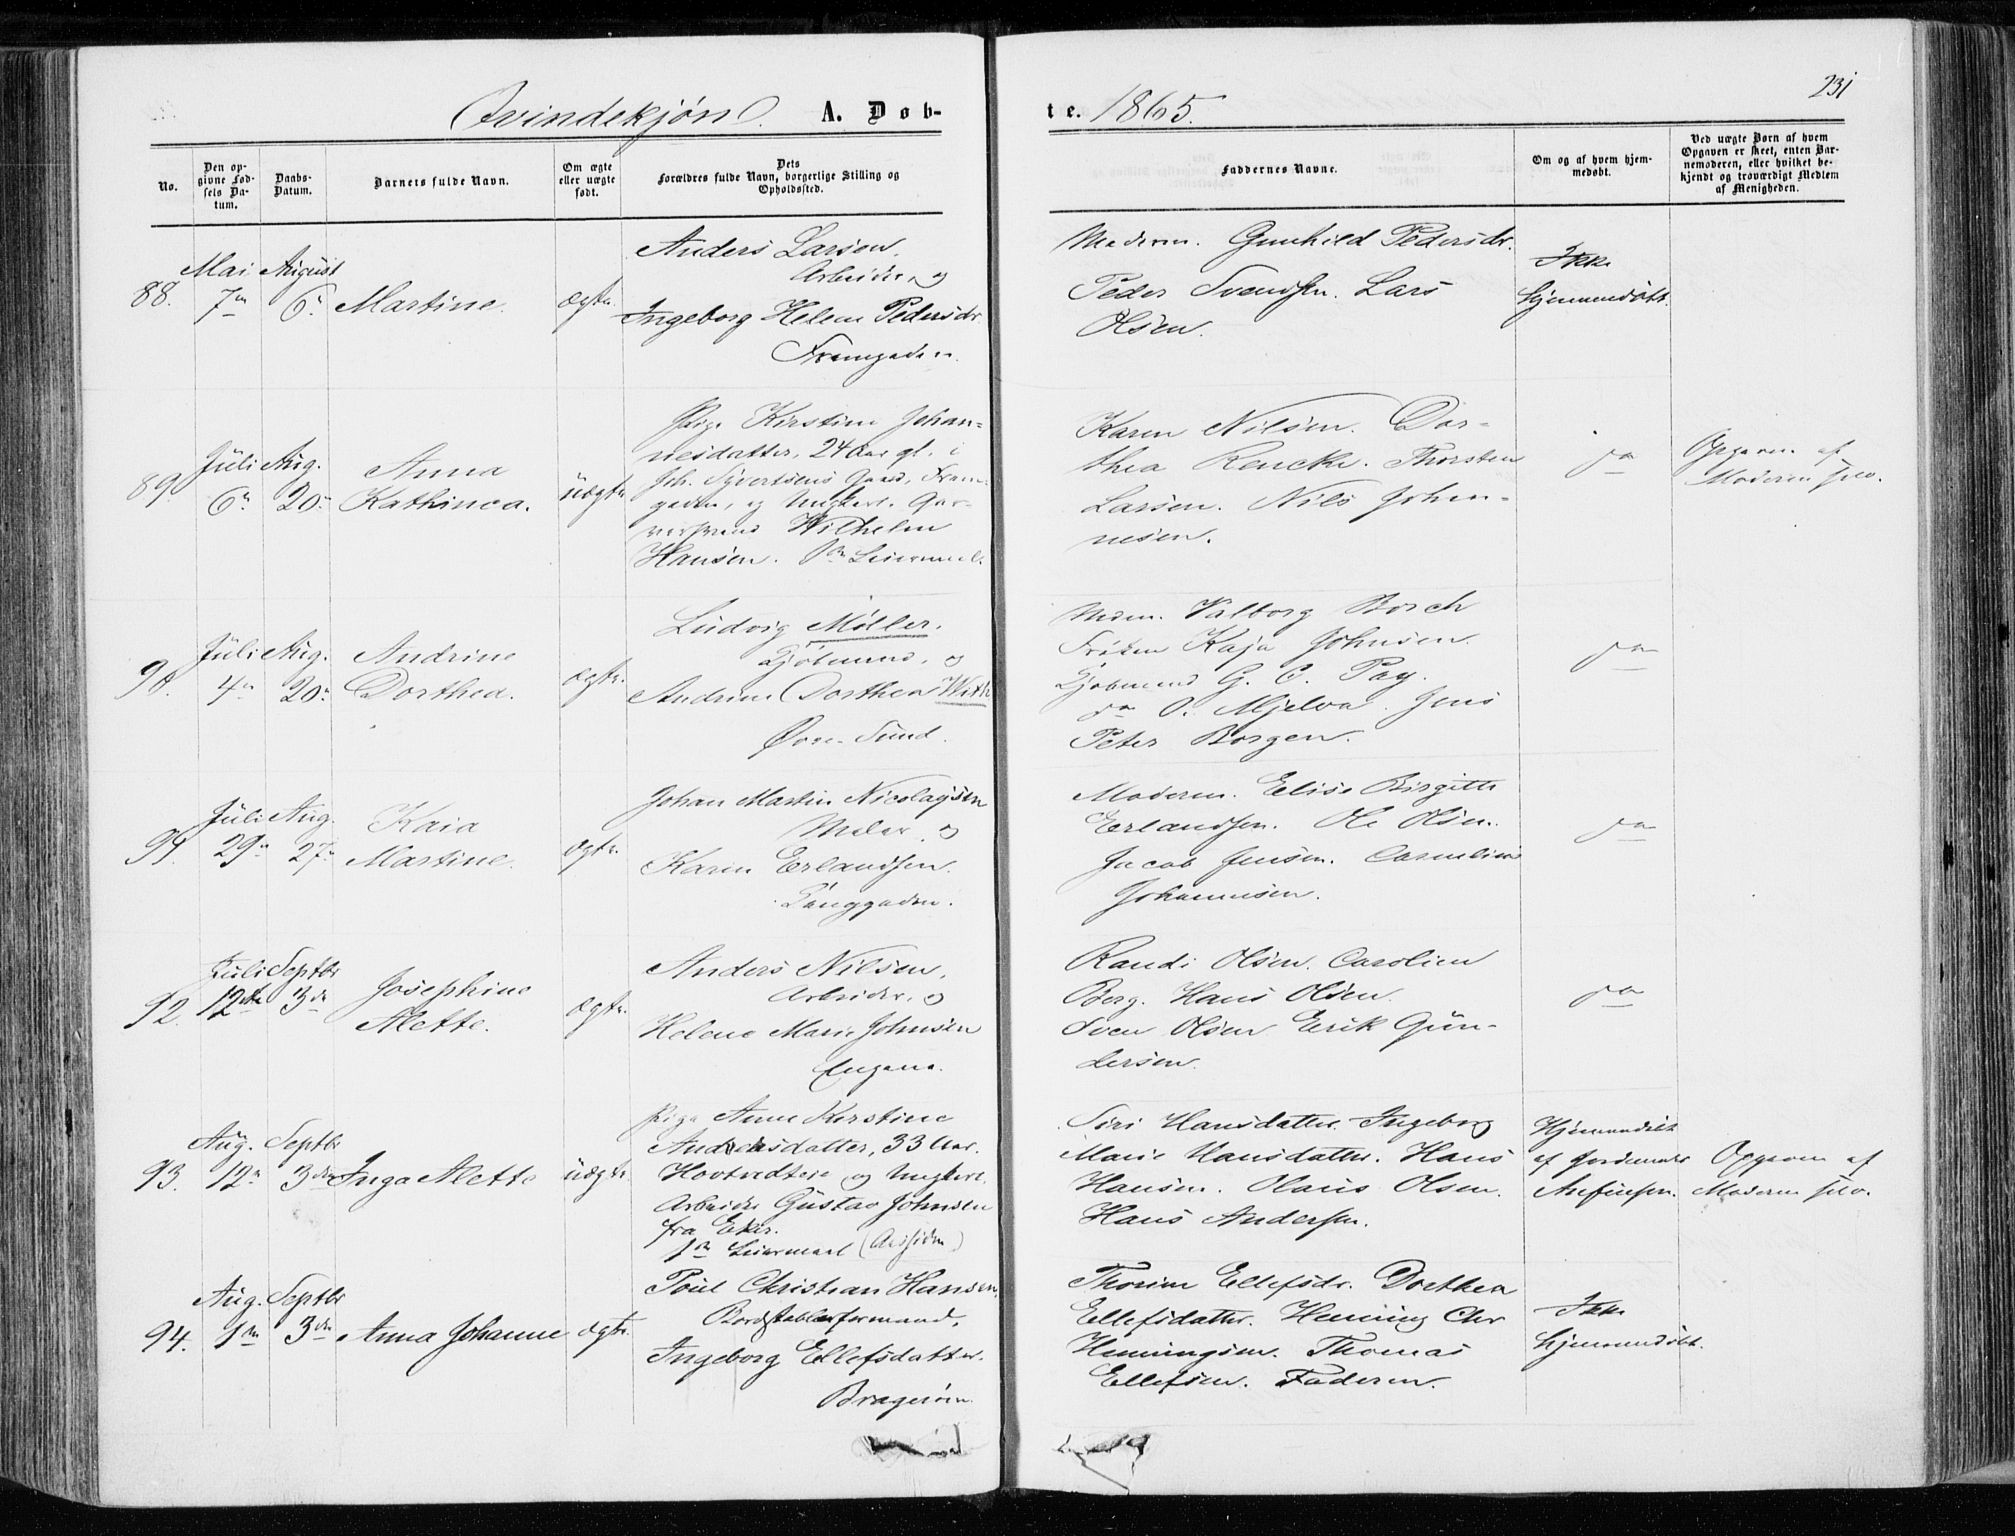 231
Qvindekjøn. A. Døbte. 1865.
No.
Den opgivne Fødsels Datum.
Daabs-Datum.
Barnets fulde Navn.
Om ægte eller uægte født.
Dets Forældres fulde Navn, borgerlige Stilling og Opholdssted.
Faddernes Navne.
Om og af hvem hjemmedøbt.
Ved uægte Børn af hvem Opgaven er skeet, enten Barnemoderen, eller hvilket bekjendt og troværdigt Medlem af Menigheden.
88.
Mai
7de
August
6te
Martine.
ægte.
Anders Larsen.
Arbeider, og
Ingeborg Helene Pedersdr.
Tramgaden.
Moderen. Gunhild Pedersdr.
Peder Svendsen. Lars
Olsen.
Ikke
hjemmedøbt.
89.
Juli
6te
Aug.
20de
Anna
Kathinca.
uægte
Pige Kirstine Johan-
nesdatter, 24 Aar gl. i
Joh. Syvertsens Gaard, Tram-
gaden, og Ungkarl. Gar-
versvend Wilhelm
Hansen. 1ste Leiermaal.
Karen Nilsen. Dor-
thea Rencke. Thorsten
Larsen. Nils Johan-
nesen.
do
Opgaven af
Moderen selv.
90.
Juli
4de
Aug.
20de
Andrine
Dorthea.
ægte.
Ludvig Møller.
Kjøbmand, og
Andrine Dorthea With
Øvre Sund.
Modn. Valborg Borch
Frøken Kaja Johnsen.
Kjøbmand G. C. Pay.
do O. Mjelva. Jens
Peter Borgen.
do
91.
Juli
29de
Aug.
27de
Kaia
Martine.
ægte.
Johan Martin Nicolaysen
Maler og
Karen Erlandsen.
Langgaden.
Moderen. Elise Birgitte
Erlandsen. Ole Olsen.
Jacob Jensen. Cornelius
Johannesen.
do
92.
Juli
12te
Septbr
3de
Josephine
Alette.
ægte.
Anders Nilsen,
Arbeider, og
Helene Marie Johnsen
Engene.
Randi Olsen. Carolien
Berg. Hans Olsen.
Sven Olsen Erik Gun-
dersen.
do
93.
Aug.
12te
Septbr
3de
Inga Alette
uægte.
Pige Anne Kirstine
Andersdatter, 33 Aar.
Hovtvedteie og Ungkarl.
Arbeider Gustav Johnsen
fra Eker.
1ste Leiermaal (Aassiden)
Siri Hansdatter. Ingeborg
Marie Hansdatter. Hans
Hansen. Olaus Olsen.
Hans Andersen.
Hjemmedøbt
af Jordemoder
Opgaven af
Moderen selv.
94.
Aug.
1ste
Septbr
3de
Anna Johanne
ægte.
Poul Christian Hansen,
Bordstablerformand,
Ingeborg Ellefsdatter.
Bragerøen.
Thorine Ellefsdr. Dorthea
Ellefsdatter. Henning Chr
Henningsen. Thomas
Ellefsen. Faderen.
Ikke
hjemmedøbt.